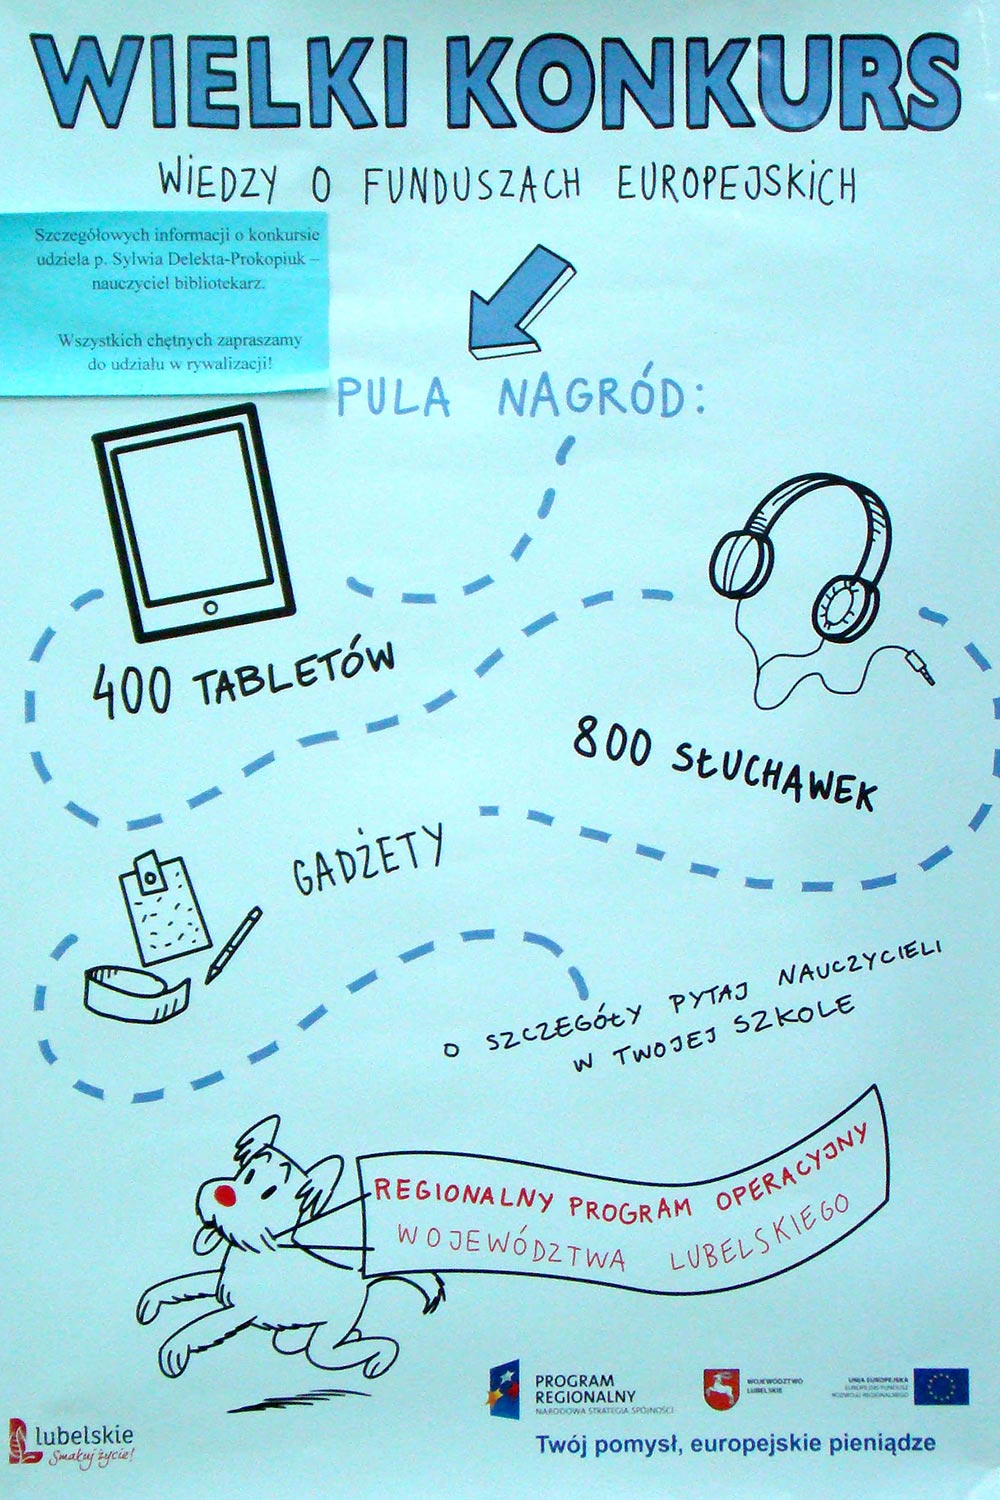 WIELKI KONKURS
WIEDZY O FUNDUSZACH EUROPEJSKICH
Szczegółowych informacji o konkursie
udziela p. Sylwia Delekta-Prokopiuk –
nauczyciel bibliotekarz.
Wszystkich chętnych zapraszamy
do udziału w rywalizacji!
PULA NAGRÓD:
400 TABLETÓW
800 SŁUCHAWEK
GADŻETY
O SZCZEGÓŁY PYTAJ NAUCZYCIELI
W TWOJEJ SZKOLE
REGIONALNY PROGRAM OPERACYJNY
WOJEWÓDZTWA LUBELSKIEGO
PROGRAM
REGIONALNY
NARODOWA STRATEGIA SPÓJNOŚCI
WOJEWÓDZTWO
LUBELSKIE
UNIA EUROPEJSKA
EUROPEJSKI FUNDUSZ
ROZWOJU REGIONALNEGO
lubelskie
Smakuj życie!
Twój pomysł, europejskie pieniądze